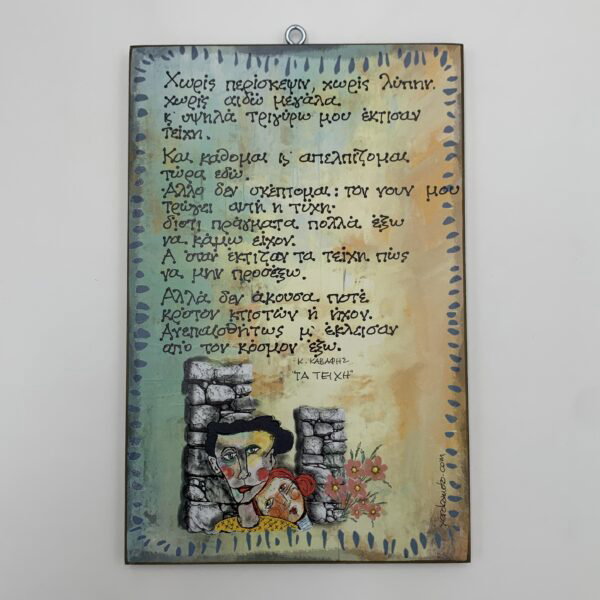 Χωρίς περίσκεψιν, χωρίς λύπην
χωρίς αιδώ μεγάλα.
κ' υψηλά τριγύρω μου έκτισαν
τείχη.
Και κάθομαι κ' απελπίζομαι
τώρα εδώ.
Άλλο δεν σκέπτομαι: τον νουν μου
τρώγει αυτή η τύχη·
διότι πράγματα πολλά έξω
να κάμω είχον.
Α όταν έκτιζαν τα τείχη πώς
να μην προσέξω.
Αλλά δεν άκουσα ποτέ
κρότον κτιστών ή ήχον.
Ανεπαισθήτως μ' έκλεισαν
από τον κόσμον έξω.
Κ. ΚΑΒΑΦΗΣ
"ΤΑ ΤΕΙΧΗ"